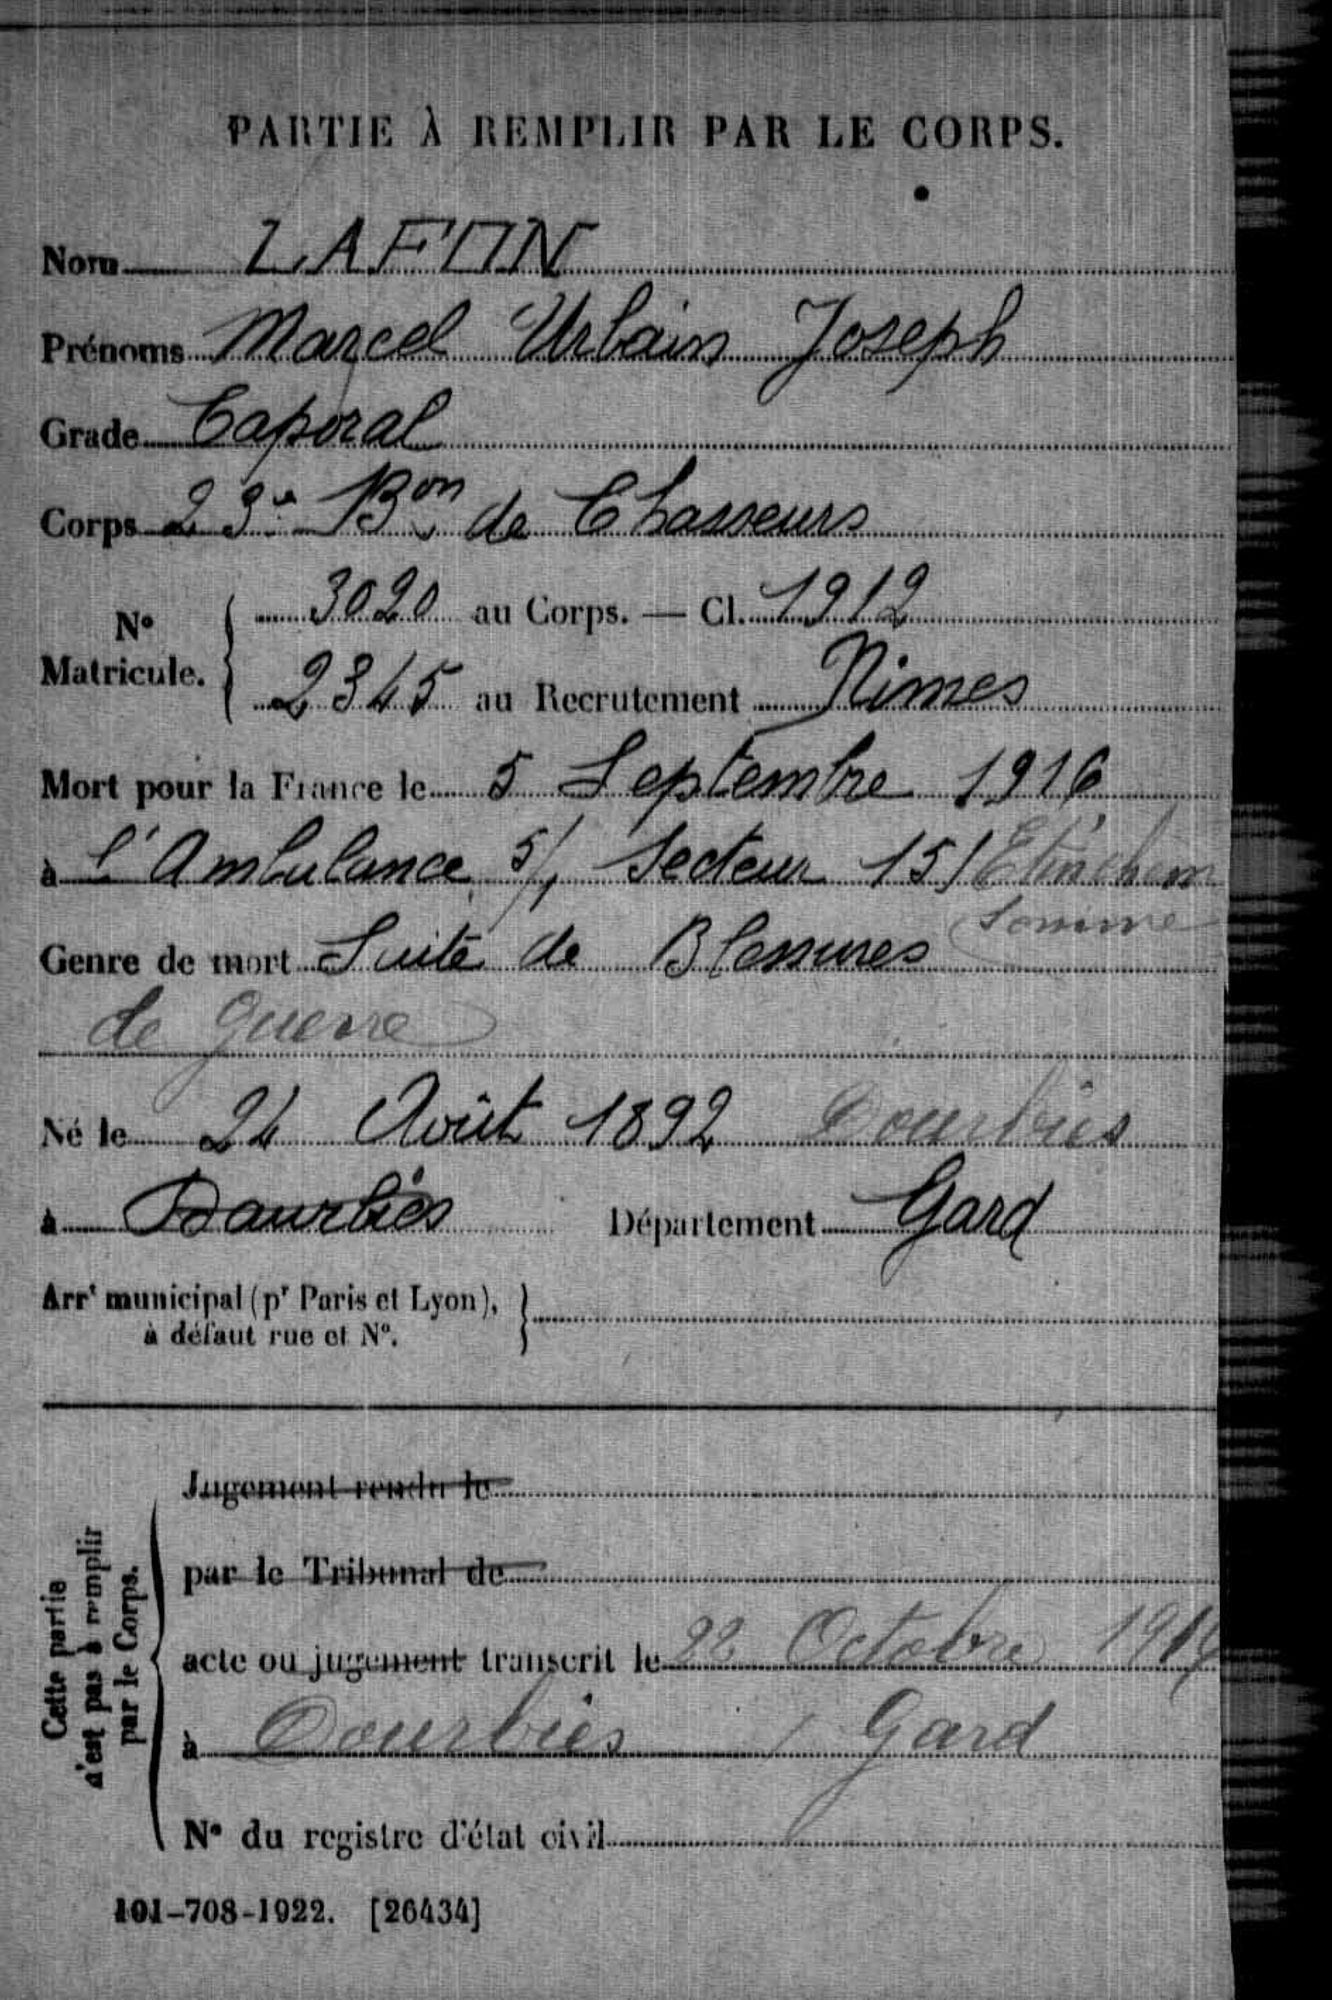 PARTIE À REMPLIR PAR LE CORPS.
Nom LAFON
Prénoms Marcel Urbain Joseph
Grade Caporal
Corps 23e Bon de Chasseurs
No Matricule. { 3020 au Corps. — Cl. 1912
2345 au Recrutement Nimes
Mort pour la France le 5 Septembre 1916
à l'Ambulance 5/1 Secteur 151 Etinehem
Somme
Genre de mort Suite de Blessures
de guerre
Né le 24 Août 1892 Dourbies
à Daurbiès Département Gard
Arrt municipal (pr Paris et Lyon), }
à défaut rue et No.
Cette partie n'est pas à remplir par le Corps.
Jugement rendu le
par le Tribunal de
acte ou jugement transcrit le Octobre
à Dourbies Gard
No du registre d'état civil
101-708-1922. [26434]